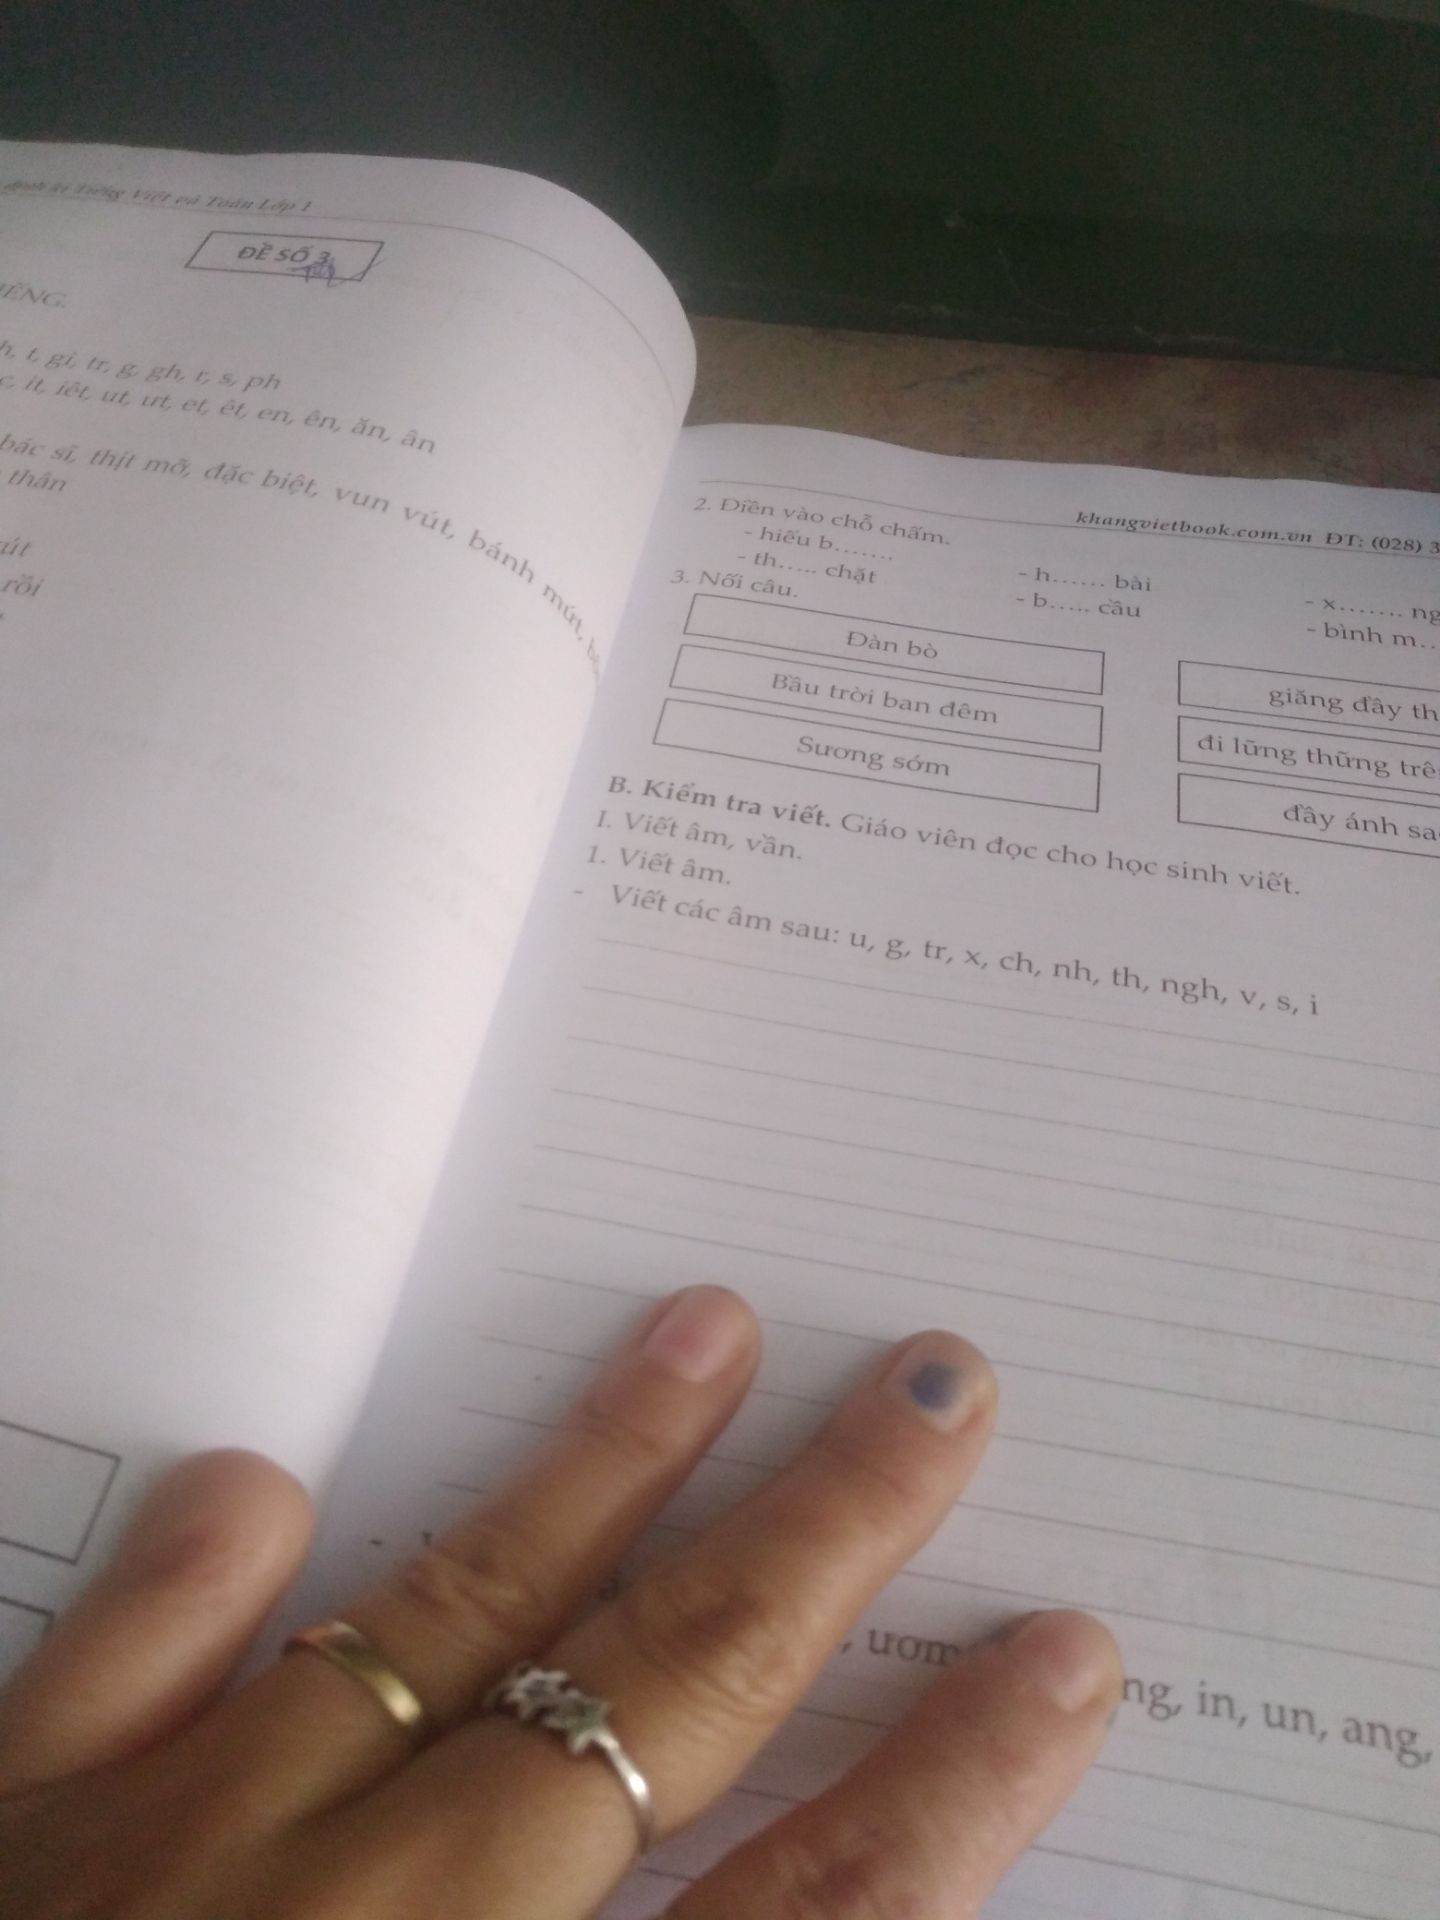 định kì Tiếng Việt và Toán Lớp 1
ĐỀ SỐ 3
IẾNG.
h, t, gi, tr, g, gh, r, s, ph
c, it, iêt, ut, ưt, et, êt, en, ên, ăn, ân
bác sĩ, thịt mỡ, đặc biệt, vun vút, bánh mứt,
thân
út
rồi
khangvietbook.com.vn ĐT: (028) 3
2. Điền vào chỗ chấm.
- hiếu b....... - h...... bài - x....... ng
- th..... chặt - b..... cầu - bình m...
3. Nối câu.
Đàn bò giăng đầy th
Bầu trời ban đêm đi lững thững trê
Sương sớm đầy ánh sa
B. Kiểm tra viết. Giáo viên đọc cho học sinh viết.
I. Viết âm, vần.
1. Viết âm.
- Viết các âm sau: u, g, tr, x, ch, nh, th, ngh, v, s, i
, ươm ng, in, un, ang,